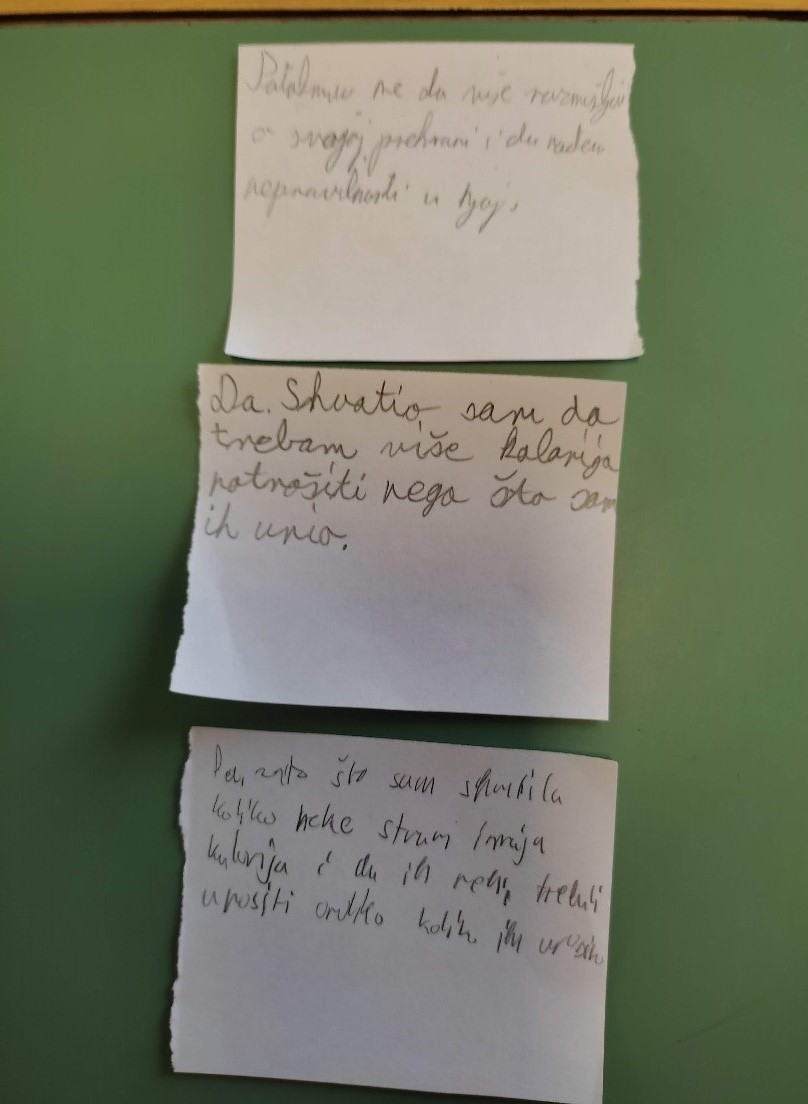 Potaknuo me da više razmišljam
o svojoj prehrani i da nađem
nepravilnosti u njoj.
Da. Shvatio sam da
trebam više kalorija
potrošiti nego što sam
ih unio.
Da, zato što sam shvatila
koliko neke stvari imaju
kalorija i da ih nebi trebali
unositi onoliko koliko ih unosimo